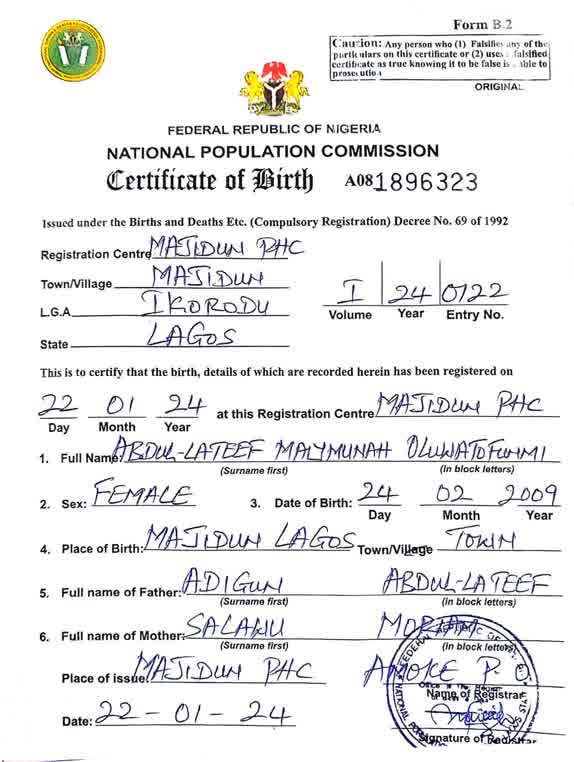 Form B.2
Caution: Any person who (1) Falsifies any of the
particulars on this certificate or (2) uses a falsified
certificate as true knowing it to be false is liable to
prosecution
ORIGINAL
FEDERAL REPUBLIC OF NIGERIA
NATIONAL POPULATION COMMISSION
Certificate of Birth A081896323
Issued under the Births and Deaths Etc. (Compulsory Registration) Decree No. 69 of 1992
Registration Centre MAJIDUN PHC
Town/Village MAJIDUN
L.G.A IKORODU
State LAGOS
I 24 0122
Volume Year Entry No.
This is to certify that the birth, details of which are recorded herein has been registered on
22 01 24 at this Registration Centre MAJIDUN PHC
Day Month Year
1. Full Name: ABDUL-LATEEF MAIYMUNAH OLUWATOFUNMI
(Surname first) (in block letters)
2. Sex: FEMALE 3. Date of Birth: 24 02 2009
Day Month Year
4. Place of Birth: MAJIDUN LAGOS Town/Village TOWN
5. Full name of Father: ADIGUN ABDUL-LATEEF
(Surname first) (in block letters)
6. Full name of Mother: SALAWU
(Surname first) (in block letters)
Place of issue: MAJIDUN PHC AMOKE P. O
Name of Registrar
Date: 22-01-24
Signature of Registrar